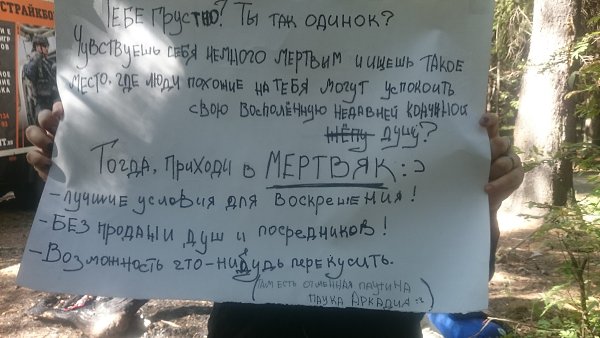 СТРАЙКБО
Тебе грустно? Ты так одинок?
Чувствуешь себя немного мертвым и ищешь такое
место, где люди похожие на тебя могут успокоить
свою восполённую недавней кончиной
жёпу душу?
Тогда, приходи в МЕРТВЯК :э
- лучшие условия для воскрешения!
- БЕЗ продажи душ и посредников!
- Возможность что-нибудь перекусить.
(Там есть отменная паутина
паука Аркадиа :э)